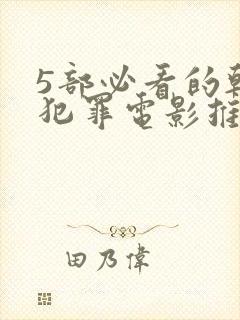 5部必看的
犯罪电影推
田乃偉